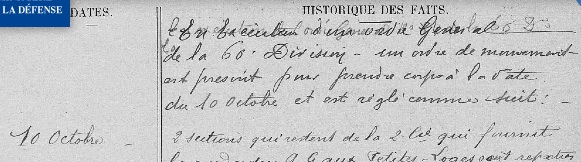 LA DÉFENSE
DATES.
HISTORIQUE DES FAITS.
En Exécution d'un ordre Général
de la 60e Division - un ordre de mouvement
est prescrit pour prendre corps à la date
du 10 octobre et est réglé comme suit :
10 Octobre
2 sections qui restent de la 2e Cie qui fournit